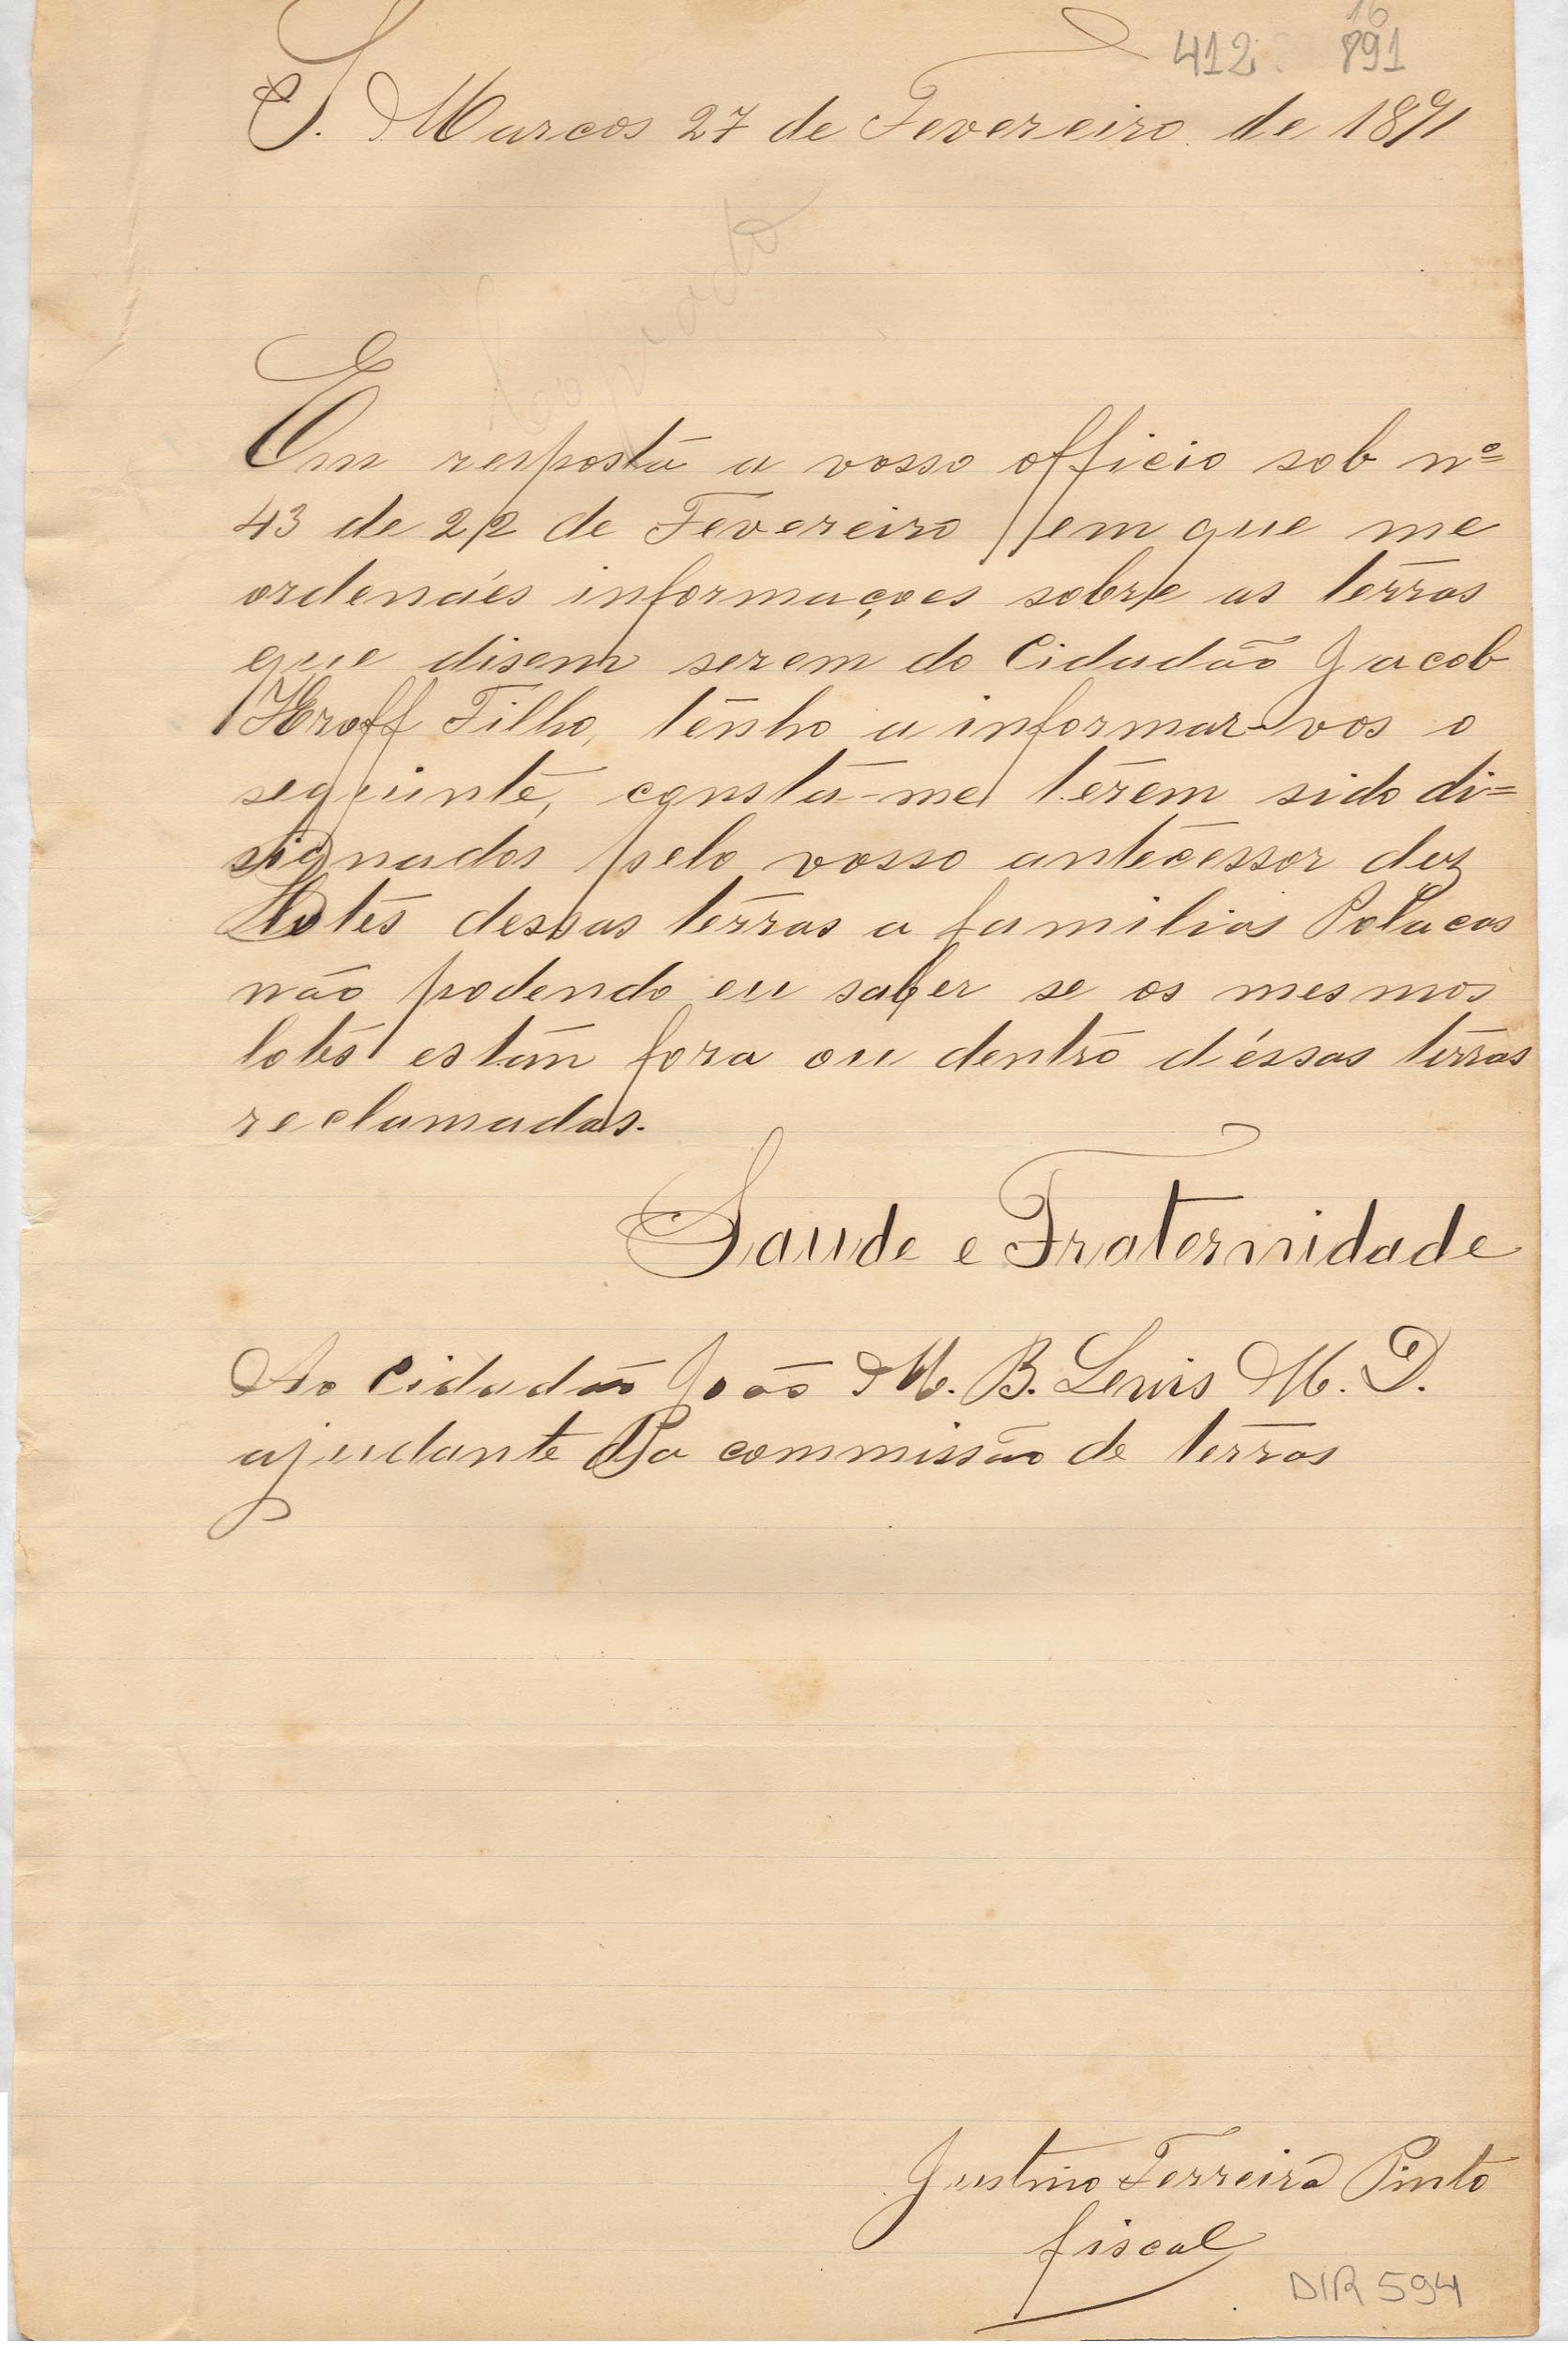 16
412 891
S. Marcos 27 de Fevereiro de 1891
Copiado
Em resposta a vosso officio sob nº
43 de 22 de Fevereiro em que me
ordenáes informaçoes sobre as terras
que disem serem do Cidadão Jacob
Kroff Filho, tenho a informar-vos o
seguinte, consta-me terem sido di=
signados pelo vosso antecessor dez
Lotes dessas terras a familias Polacas
não podendo eu saber se os mesmos
lotes estam fora ou dentro d'éssas terras
reclamadas.
Saude e Fraternidade
Ao Cidadão João M. B. Lewis M. D.
ajudante da commissão de terras
Justino Ferreira Pinto
fiscal
DIR 594